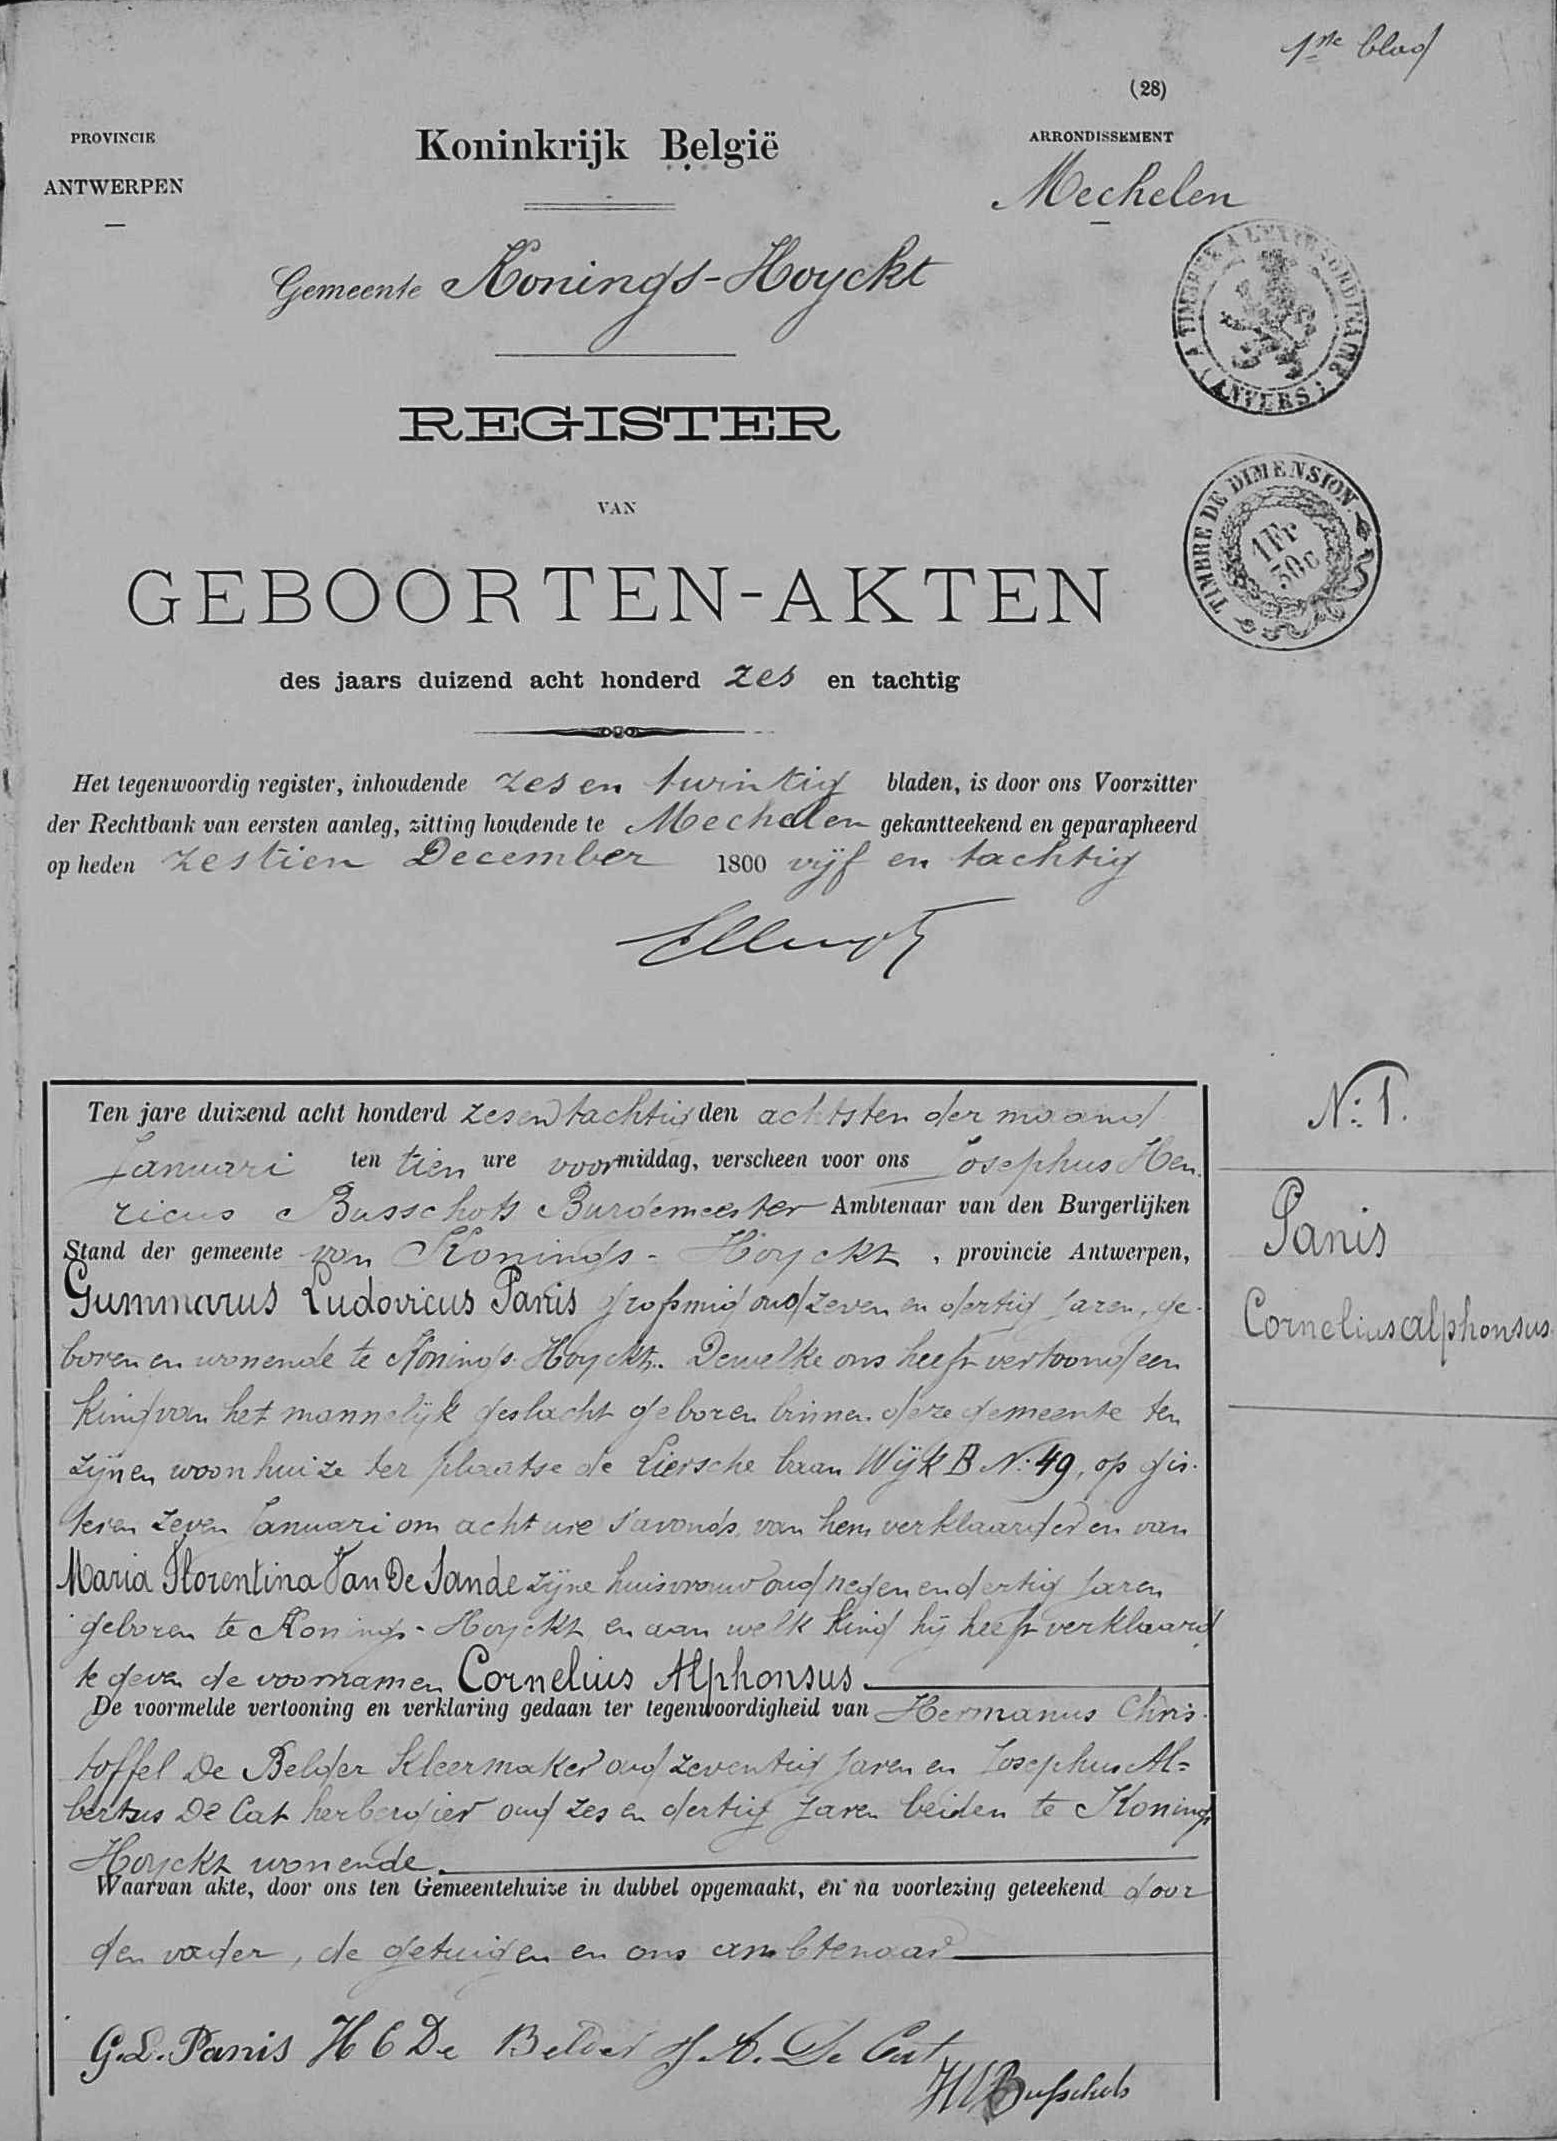 1ste blad
(28)
PROVINCIE
ANTWERPEN
Koninkrijk België
ARRONDISSEMENT
Mechelen
Gemeente Konings-Hoyckt
A TIMBRE A L'EXTRAORDINAIRE
(ANVERS)
REGISTER
VAN
TIMBRE DE DIMENSION.
1Fr
30c
GEBOORTEN-AKTEN
des jaars duizend acht honderd zes en tachtig
Het tegenwoordig register, inhoudende zes en twintig bladen, is door ons Voorzitter
der Rechtbank van eersten aanleg, zitting houdende te Mechelen gekantteekend en geparapheerd
op heden zestien December 1800 vijf en tachtig
Ten jare duizend acht honderd zesentachtig den achtsten der maand
Januari ten tien ure voormiddag, verscheen voor ons Josephus Hen
ricus Busschots Burgemeester Ambtenaar van den Burgerlijken
Stand der gemeente van Konings-Hoyckt, provincie Antwerpen,
Gummarus Ludovicus Panis grofsmid oud zeven en dertig jaren, ge-
boren en wonende te Konings-Hoyckt. Dewelke ons heeft vertoond een
kind van het mannelijk geslacht geboren binnen deze gemeente ten
zijnen woonhuize ter plaatse de Liersche baan Wijk B N: 49, op gis-
teren zeven Januari om acht ure s'avonds, van hem verklaarder en van
Maria Florentina Van De Sande zijne huisvrouw oud negen en dertig jaren
geboren te Konings-Hoyckt en aan welk kind hij heeft verklaard
te geven de voornamen Cornelius Alphonsus.
De voormelde vertooning en verklaring gedaan ter tegenwoordigheid van Hermanus Chris-
toffel De Belder kleermaker oud zeventig jaren en Josephus Al=
bertus De Cat herbergier oud zes en dertig jaren beiden te Konings
Hoyckt wonende.
Waarvan akte, door ons ten Gemeentehuize in dubbel opgemaakt, en na voorlezing geteekend door
den vader, de getuigen en ons ambtenaar
G.L. Panis H C De Belder J. A. De Cat
HBusschots
N: 1.
Panis
Cornelius alphonsus